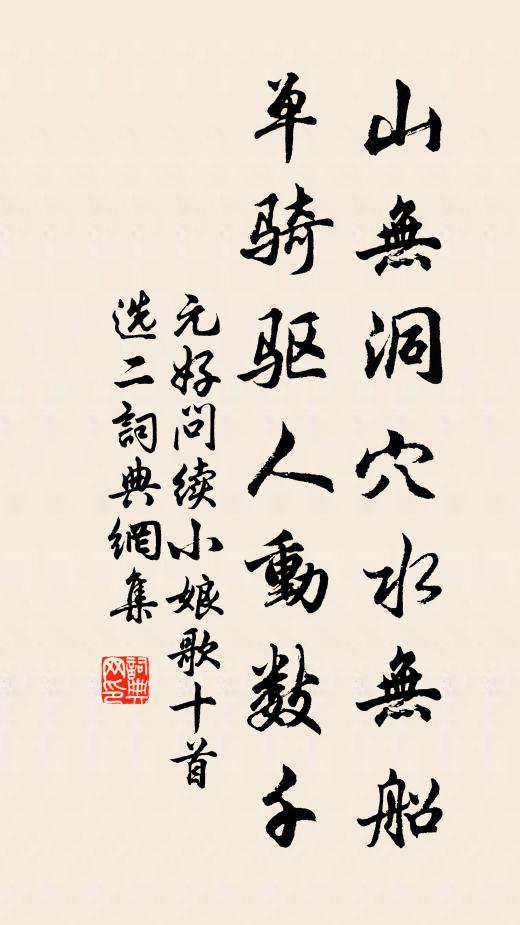 山無洞穴水無船
单骑驱人動数千
元好问续小娘歌十首
选二詞典網集
詞典网印